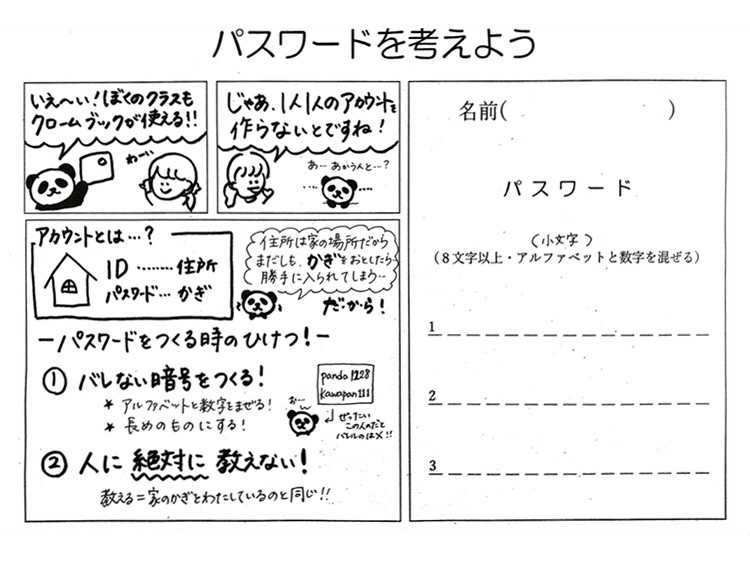 パスワードを考えよう
いえ〜い！ぼくのクラスも
クロームブックが使える!!
わ〜♡
じゃあ、1人1人のアカウントを
作らないとですね！
あ… あかうんと…？
アカウントとは…？
ID ……… 住所
パスワード… かぎ
住所は家の場所だから
まだしも、かぎをおとしたら
勝手に入られてしまう…
だ・か・ら！
ーパスワードをつくる時のひけつ！ー
① バレない暗号をつくる！
＊ アルファベットと数字をまぜる！
＊ 長めのものにする！
panda1228
kawapan111
お…
ぜったい
この人のだと
バレルのは×!!
② 人に 絶対に 教えない！
教える＝家のかぎとわたしているのと同じ!!
名前(　　　　　　　)
パスワード
(小文字)
(８文字以上・アルファベットと数字を混ぜる)
1
2
3